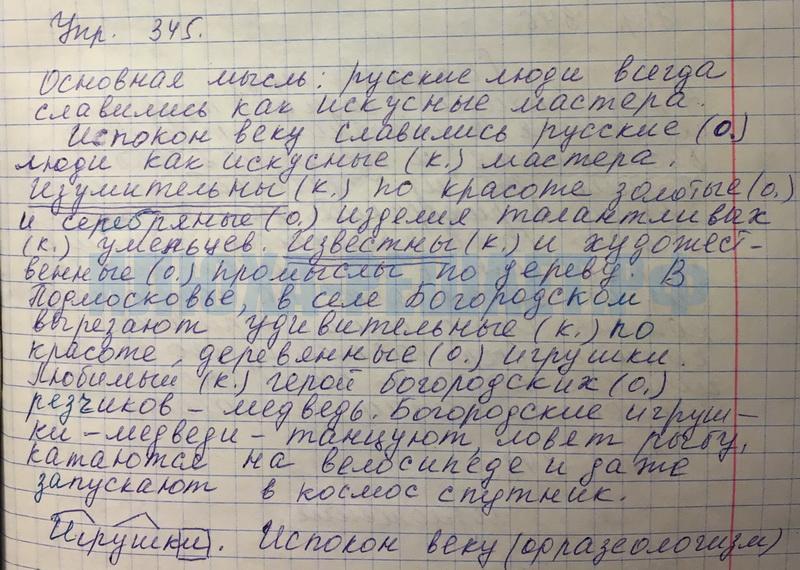 Упр. 345.
Основная мысль: русские люди всегда
славились как искусные мастера.
Испокон веку славились русские (о.)
люди как искусные (к.) мастера.
Изумительны (к.) по красоте золотые (о.)
и серебряные (о.) изделия талантливах
(к.) умельцев. Известны (к.) и художест-
венные (о.) промыслы по дереву. В
Подмосковье, в селе Богородском
вырезают удивительные (к.) по
красоте деревянные (о.) игрушки.
Любимый (к.) герой богородских (о.)
резчиков – медведь. Богородские игруш-
ки – медведи – танцуют, ловят рыбу,
катаются на велосипеде и даже
запускают в космос спутник.
Игрушки. Испокон веку (фразеологизм)